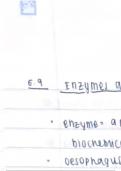 5.9 Enzymes a
• enzyme = a p
biochemic
• oesophagus